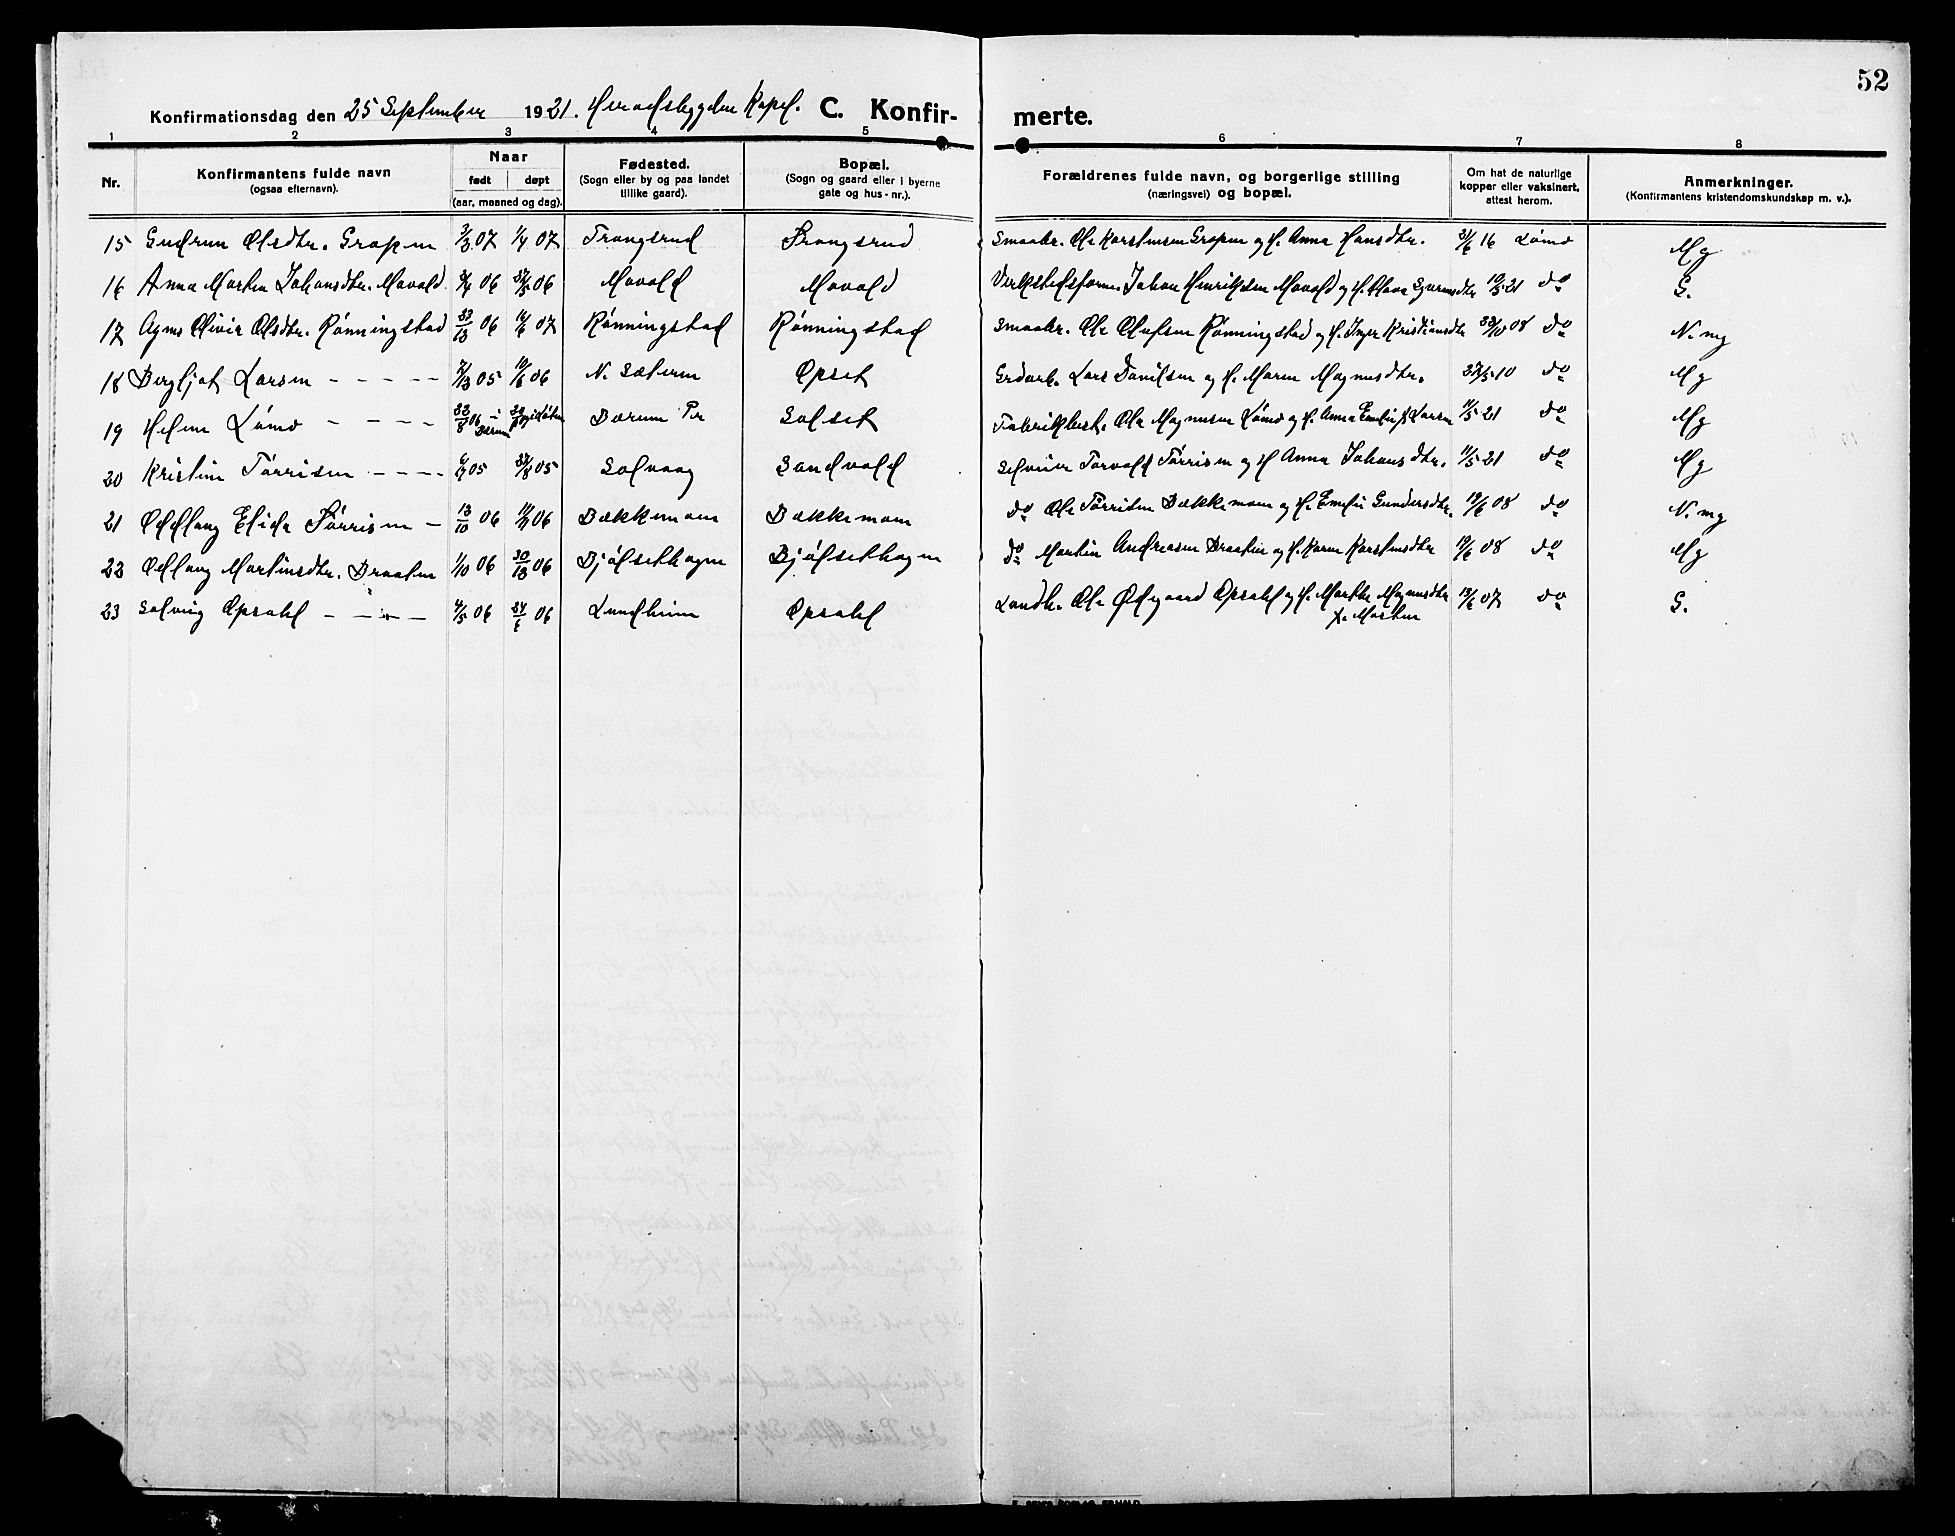 52
Konfirmationsdag den 25 September 1921. Heradsbygden Kapel. C. Konfirmerte.
1 2 3 4 5 6 7 8
Nr. Konfirmantens fulde navn (ogsaa efternavn). Naar født døpt (aar, maaned og dag). Fødested. (Sogn eller by og paa landet tillike gaard). Bopæl. (Sogn og gaard eller i byerne gate og hus-nr.). Forældrenes fulde navn, og borgerlige stilling (næringsvei) og bopæl. Om hat de naturlige kopper eller vaksinert, attest herom. Anmerkninger. (Konfirmantens kristendomskundskap m. v.).
15 Gudrun Olsdtr. Grapen 3/3 07 1/4 07 Trangsrud Trangsrud Smaabr. Ole Karstensen Grapen og H. Anna Hansdtr. 16 Lømo Mg
16 Anna Marten Johansdtr. Movold 06 06 Movold Movold Verkstedsform. Johan Henriksen Movold og H. 21 do G.
17 Agnes Olivie Olsdtr. Rønningstad 06 07 Rønningstad Rønningstad Smaabr. Ole Olufsen Rønningstad og H. Inger Kristiansdtr 08 do N. mg
18 Bergljot Larsen - - - - - 05 10/6 06 N. Sæteren Opset Grdarb. Lars Danielsen og H. Maren Magnusdtr. 10 do Mg
19 Helene Lømo - - - - 06 i Bærum Bærum Pr Solset Fabrikbest. Ole Magnusen Lømo og H. Anna Emelie Larsen 11/5 21 do Mg
20 Kristine Tørrisen - - - - 05 05 Solvang Sandvold Selveier Torvald Tørrisen og H Anna Johansdtr. 11/5 21 do Mg
21 Oddlaug Elida Tørrisen - 13/10 06 06 Bækkemoen Bækkemoen do Ole Tørrisen Bækkemoen og H. Emelie Gundersdtr. 19/6 08 do N. mg
22 Oddlaug Martinsdtr. Braaten 1/10 06 06 Bjølsethagen Bjølsethagen do Martin Andreasen Braaten og H. Karen Karstensdtr 19/6 08 do Mg
23 Solveig Opsahl - - - - 4/5 06 24/6 06 Lundheim Opsahl Landh. Ole Ødegaard Opsahl og H. Marthe Magnusdtr 07 do G.
x. Marten